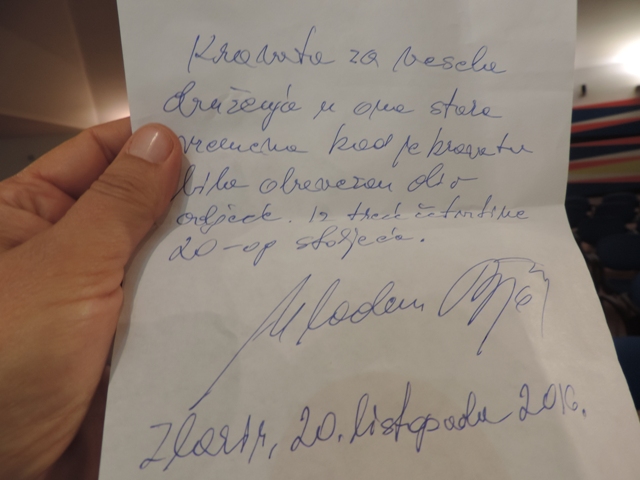 Kravata za vesela
druženja u ona stara
vremena kad je kravata
bila obavezan dio
odjeće. Iz treće četvrtine
20-og stoljeća.
Mladen
Zlarin, 20. listopada 2016.